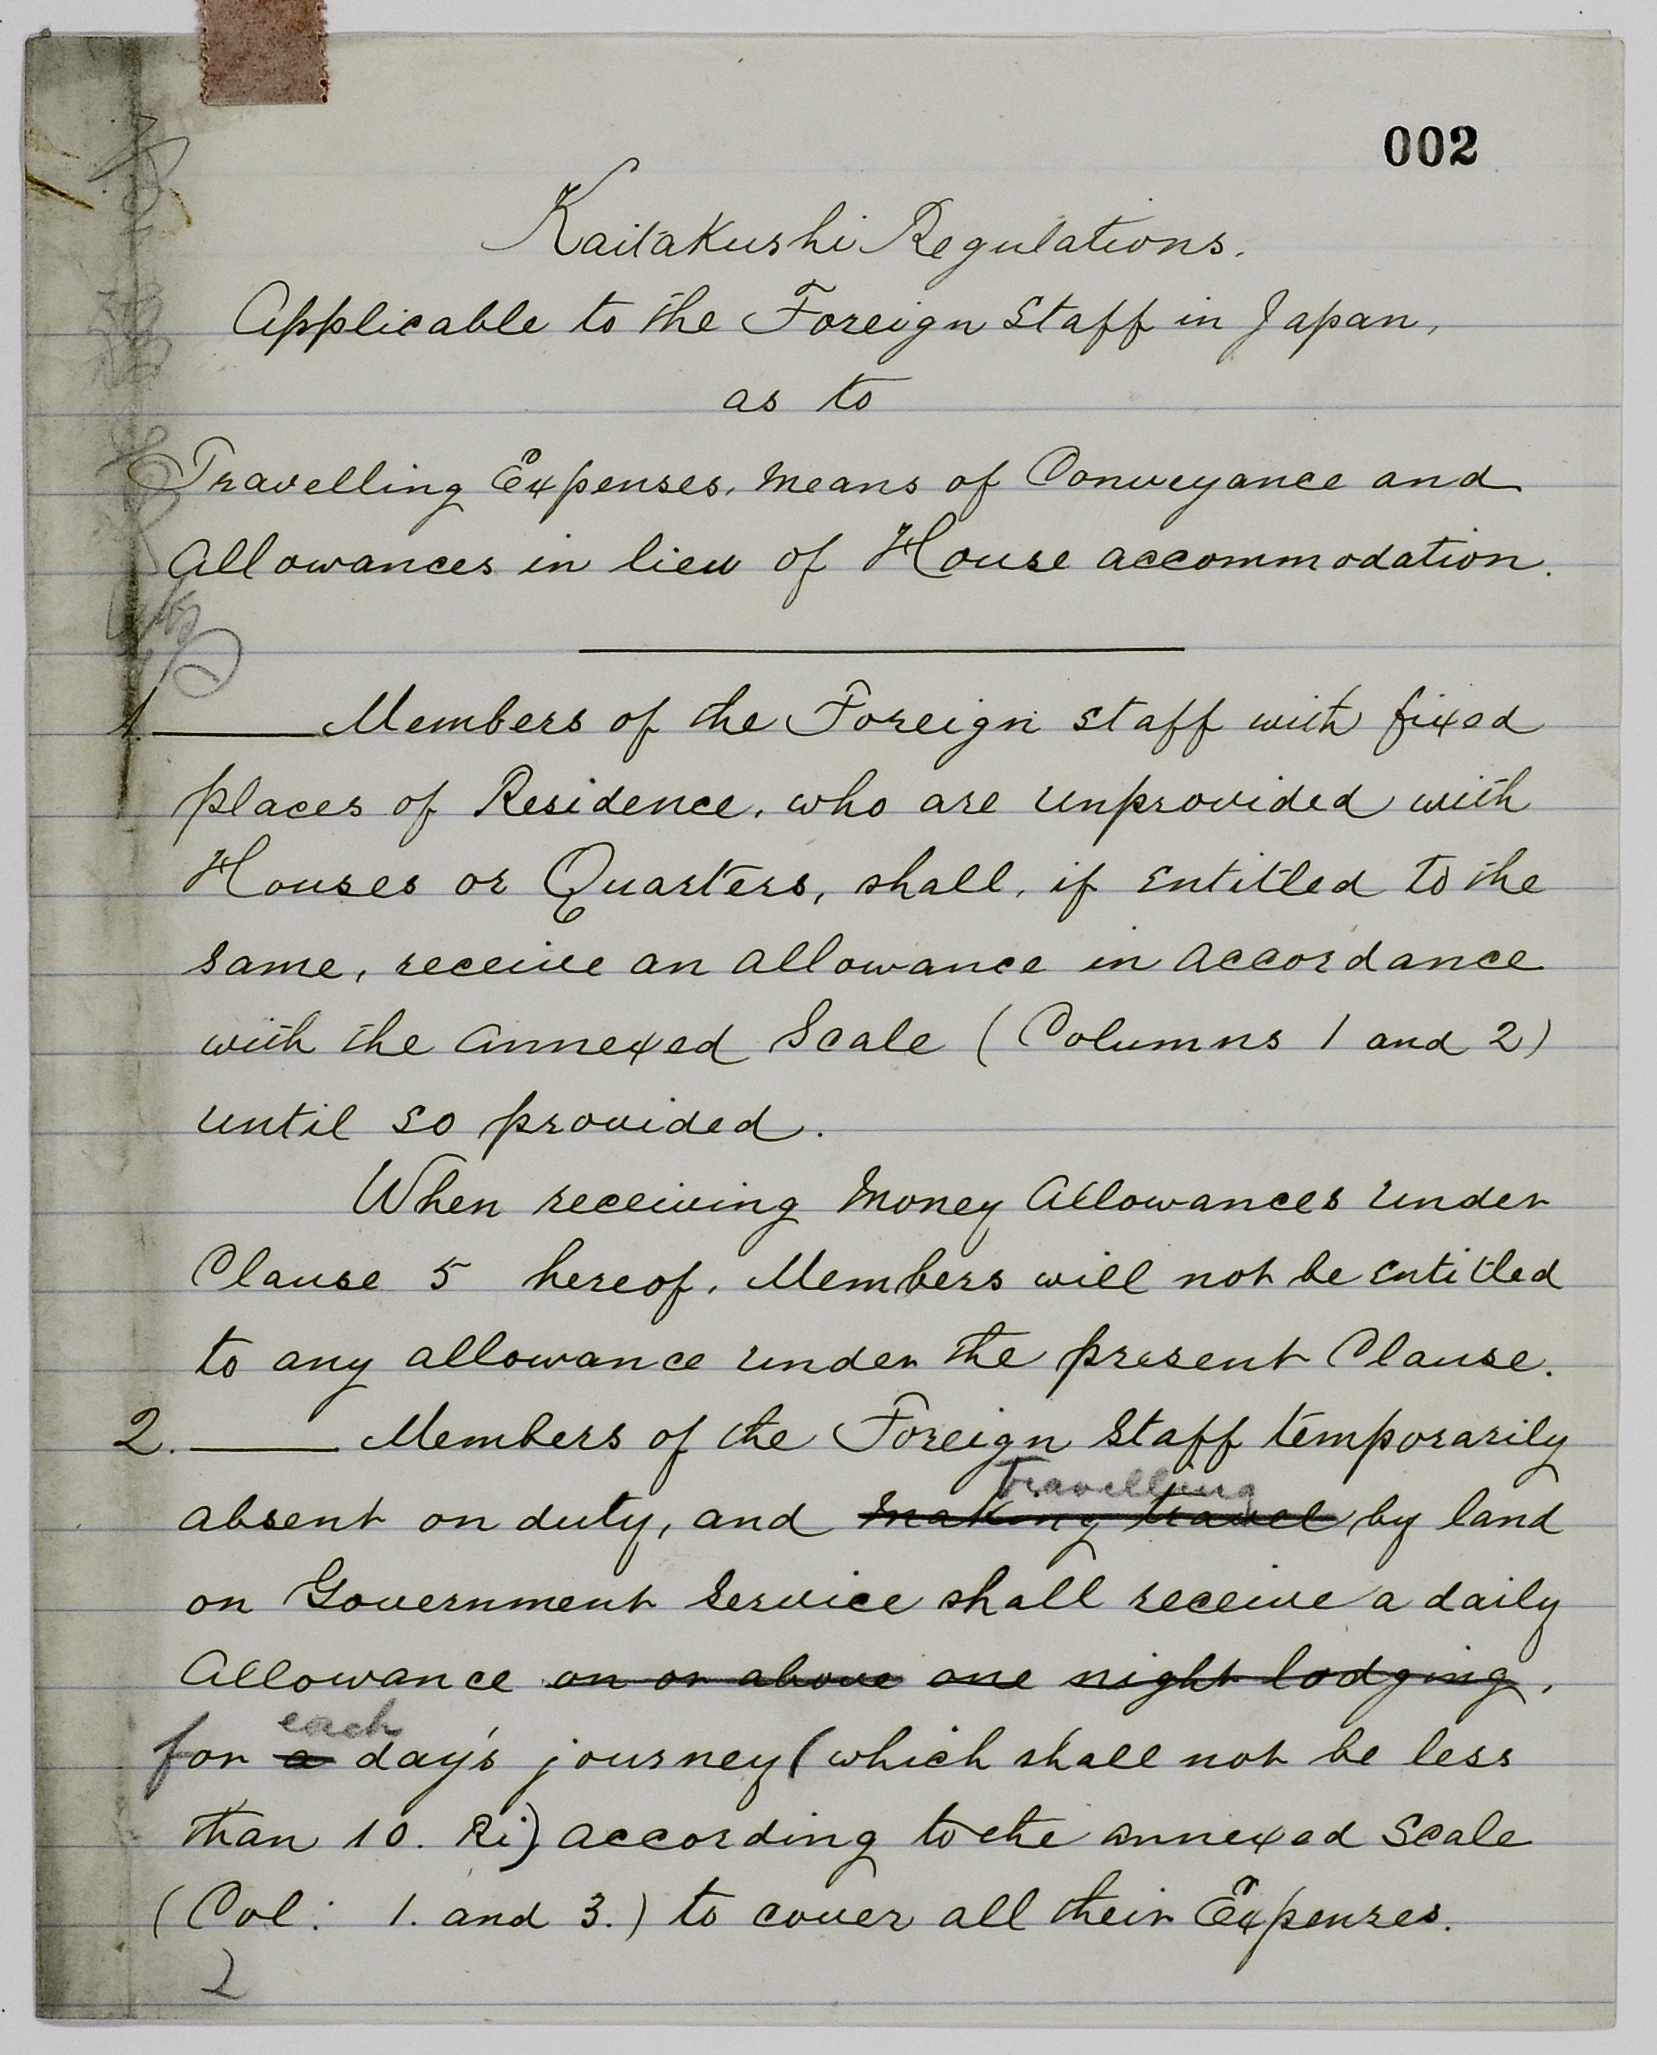 002
Kaitakushi Regulations.
Applicable to the Foreign Staff in Japan,
as to
Travelling Expenses, means of Conveyance and
Allowances in lieu of House accommodation.
1. Members of the Foreign Staff with fixed
places of Residence, who are unprovided with
Houses or Quarters, shall, if entitled to the
same, receive an allowance in accordance
with the annexed Scale (Columns 1 and 2)
until so provided.
When receiving Money Allowances under
Clause 5 hereof, Members will not be entitled
to any allowance under the present Clause.
2. Members of the Foreign Staff temporarily
travelling
absent on duty, and making travel by land
on Government Service shall receive a daily
Allowance on or above one night lodging,
each
for a day's journey (which shall not be less
than 10. Ri) according to the annexed Scale
(Col: 1. and 3.) to cover all their Expenses.
2